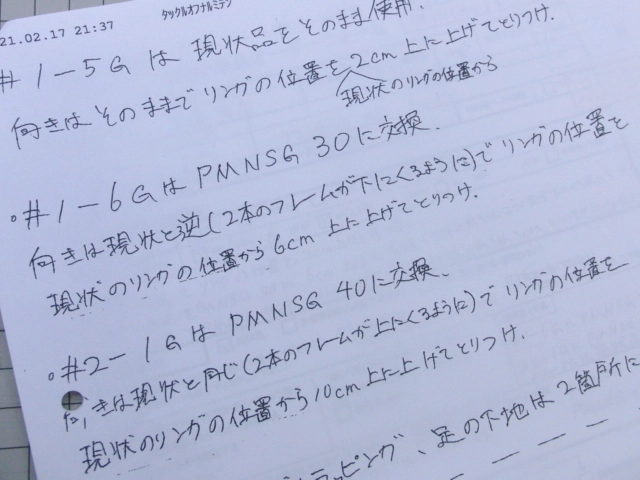 21.02.17 21:37 タックルオフナルミテン
#1-5Gは現状品をそのまま使用.
向きはそのままでリングの位置を2cm上に上げてとりつけ.
現状のリングの位置から
・#1-6GはPMNSG 30に交換.
向きは現状と逆(2本のフレームが下にくるように)でリングの位置を
現状のリングの位置から6cm上に上げてとりつけ.
・#2-1GはPMNSG 40に交換、
向きは現状と同じ(2本のフレームが上にくるように)でリングの位置を
現状のリングの位置から10cm上に上げてとりつけ.
ラッピング、足の下地は2箇所に